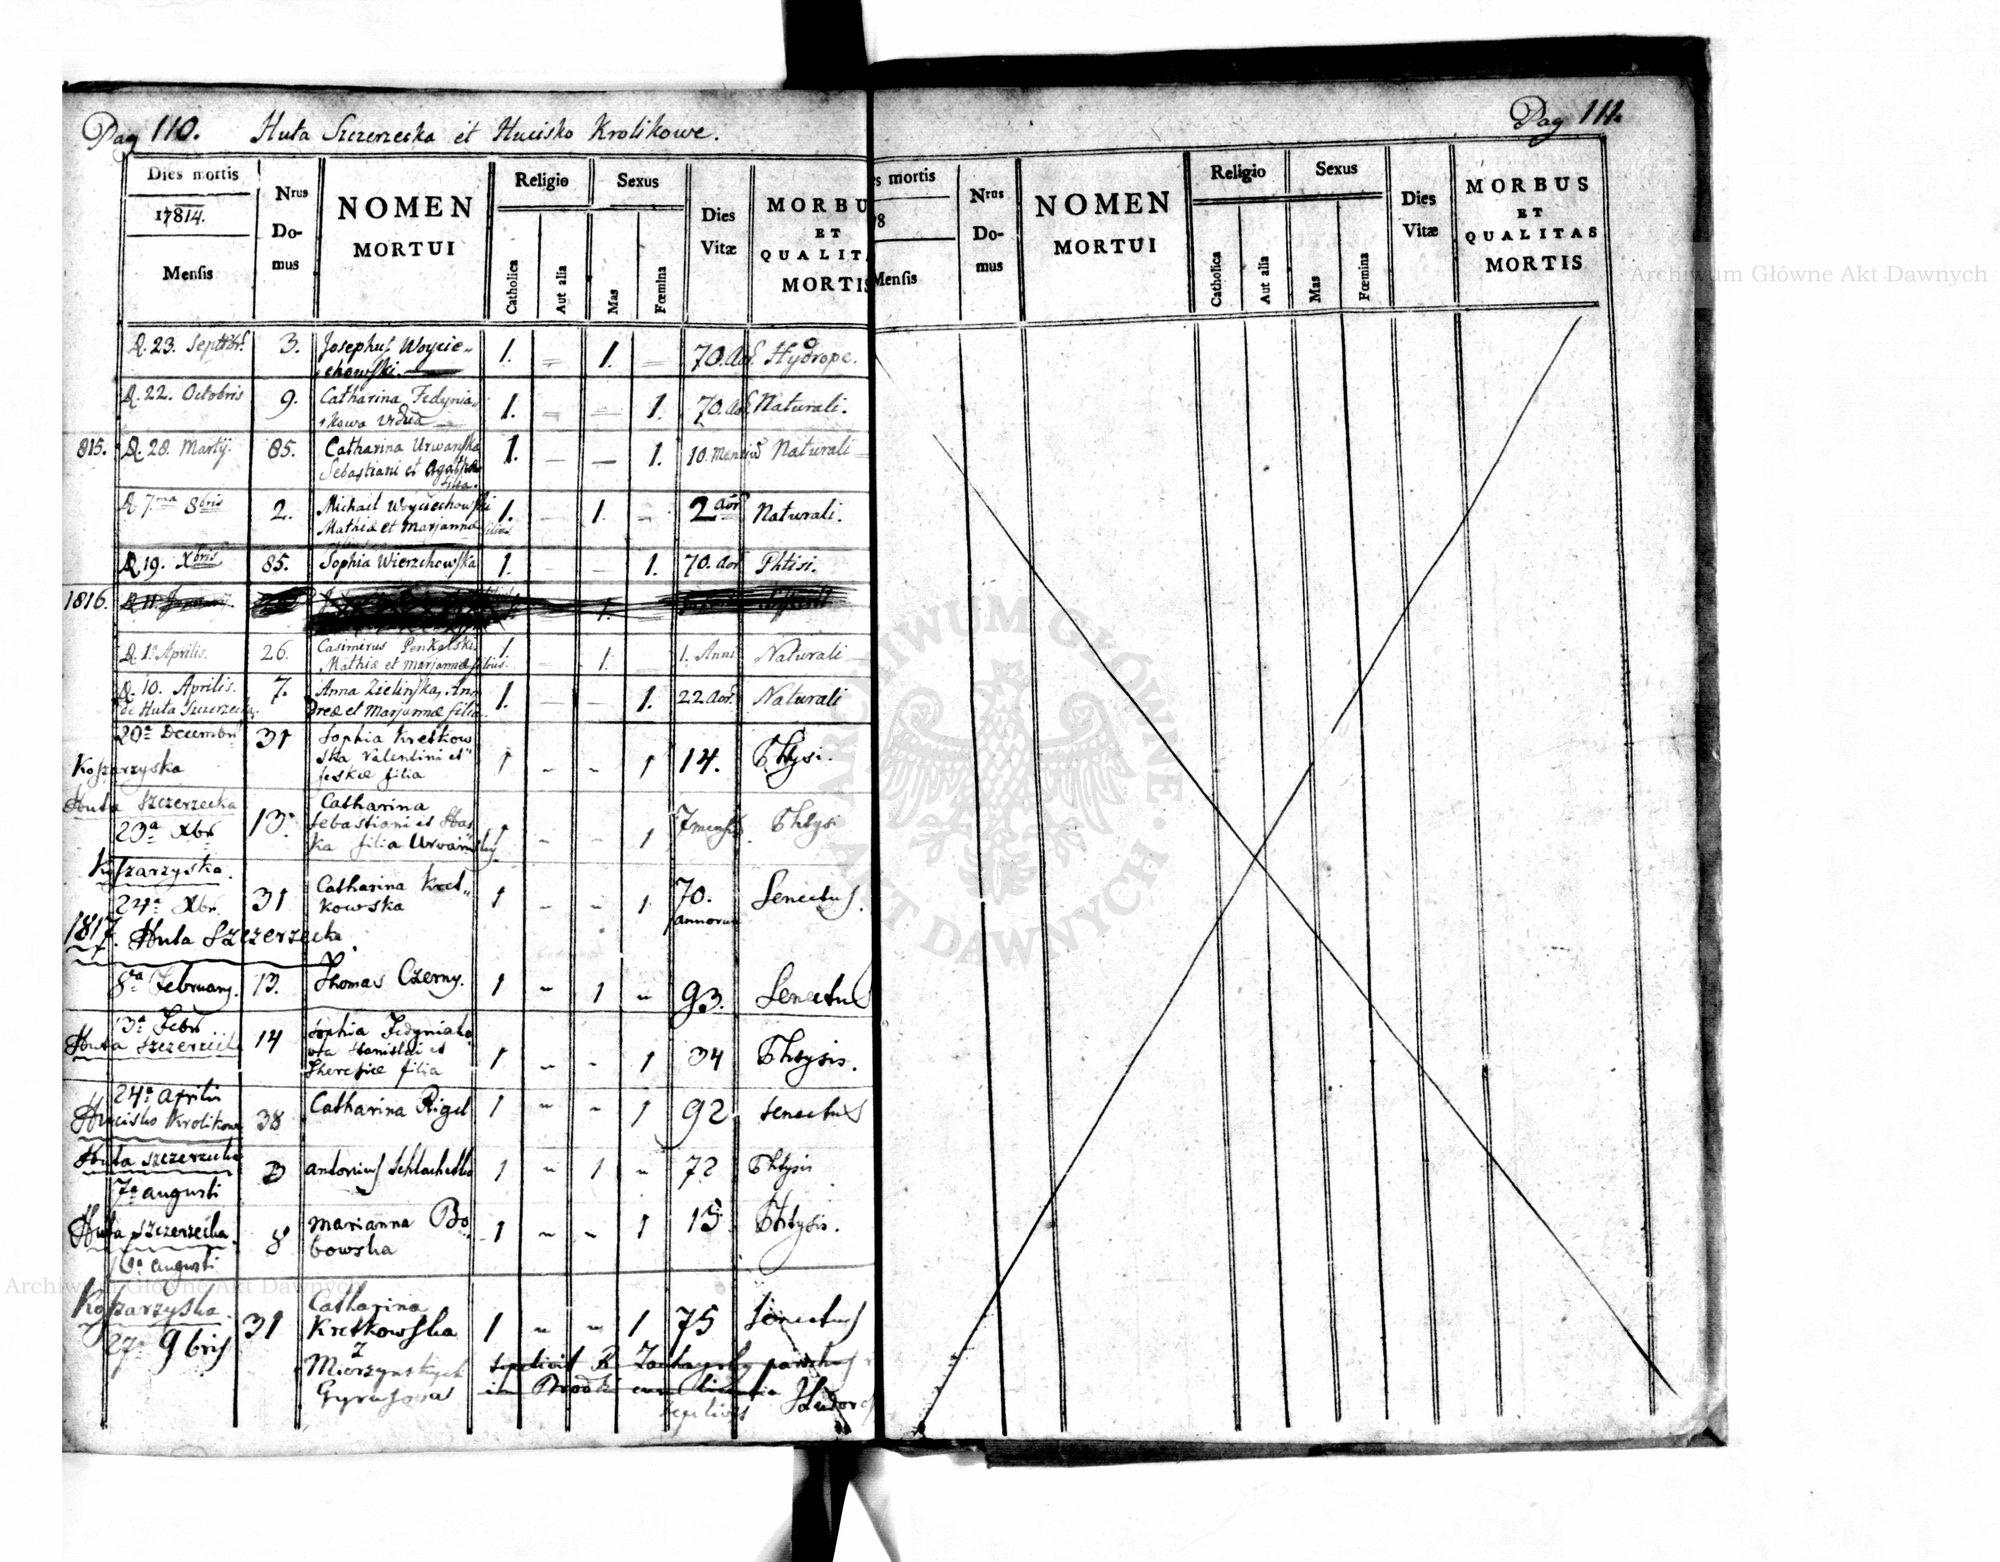 Pag 110. Huta Szczerzecka et Hucisko Krolikowe.
Dies mortis
17814.
Mensis
Nrus
Do-
mus
NOMEN
MORTUI
Religio
Catholica
Aut alia
Sexus
Mas
Fœmina
Dies
Vitæ
MORBU
ET
QUALIT
MORTIS
D. 23. Septbr. 3. Josephus Woycie„ 1. – 1. – 70. Aor. Hydrope.
chowski.
D. 22. Octobris 9. Catharina Fedynia„ 1. – – 1. 70. Aor. Naturali.
kowa Vidua
815. D. 28. Martij. 85. Catharina Urwanska 1. – – 1. 10. Mensiu Naturali
Sebastiani et Agatha
filia.
D 7ma 8bris 2. Michael Woyciechowski 1. – 1. – 2 aor Naturali.
Mathiæ et Marjannæ filius
D 19. Xbris 85. Sophia Wierzchowska 1. – – 1. 70. aor Phtisi.
1816.
D 1a Aprilis. 26. Casimirus Penkalski 1. – 1. – 1. Anni Naturali
Mathiæ et Marjannæ filius.
D. 10. Aprilis. 7. Anna Zielinska, An„ 1. – – 1. 22 aor. Naturali
de Huta Szczerzecka. dreæ et Marjannæ filia.
20a Decembr 31 Sophia Kretkow
ska Valentini et 1 – – 1 14. Phtysi.
Koszarzyska filia
Huta Szczerzecka 13. Catharina
23a Xbr Sebastiani et 1 – – 1 7 mensi Phtysi
ka filia Urwanskij.
Koszarzyska.
24a Xbr. 31 Catharina Kret„ 1 – – 1 70. Senectus.
kowska annorum
1817. Huta Szczerzecka.
8a Februarij. 13. Thomas Czerny. 1 – 1 – 93. Senectus
3a Febr 14 Sophia Fedyniako
Huta Szczerzecka wa Stanislai et 1 – – 1 34 Phtysis.
Theresiæ filia
24a Aprilis
Hucisko Krolikowe 38 Catharina Rigel 1 – – 1 92. Senectus
Huta Szczerzecka
7a augusti Antonius Schlachetka 1 – 1 – 72 Phtysis
Huta Szczerzecka. 8 Marianna Bo 1 – – 1 15. Phtysis.
16a augusti bowska
Koszarzyska 31 Catharina
27a 9bris Kretkowska 1 – – 1 75 Senectus
z
Mierzynskich
sepelivit R parochus
cum
Pag 111.
s mortis
78
Mensis
Nrus
Do-
mus
NOMEN
MORTUI
Religio
Catholica
Aut alia
Sexus
Mas
Fœmina
Dies
Vitæ
MORBUS
ET
QUALITAS
MORTIS
Archiwum Główne Akt Dawnych
ARCHIWUM GŁÓWNE AKT DAWNYCH
Archiwum Główne Akt Dawnych